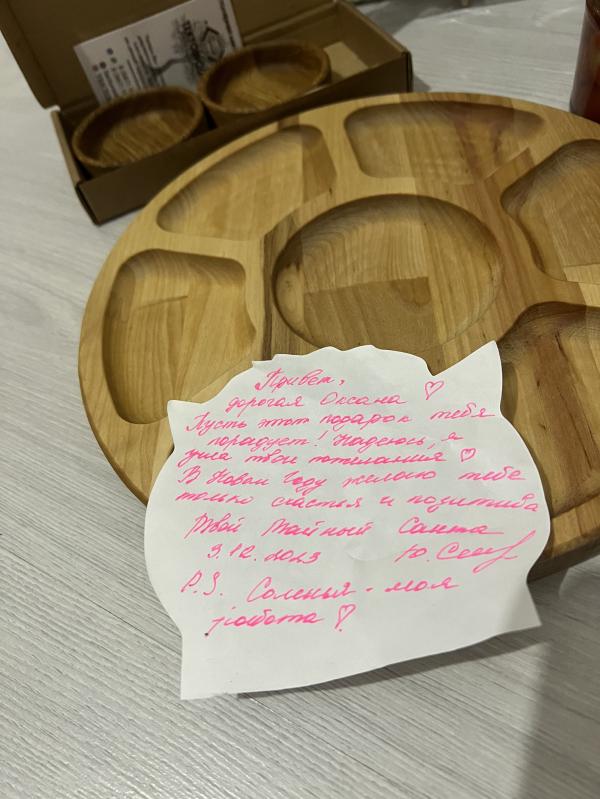 Привет,
дорогая Оксана ♡
Пусть этот подарок тебя
порадует! Надеюсь, я
учла твои пожелания ♡
В Новом Году желаю тебе
только счастья и позитива
Твой Тайный Санта
3.12.2023
P.S. Соленья - моя
работа ♡